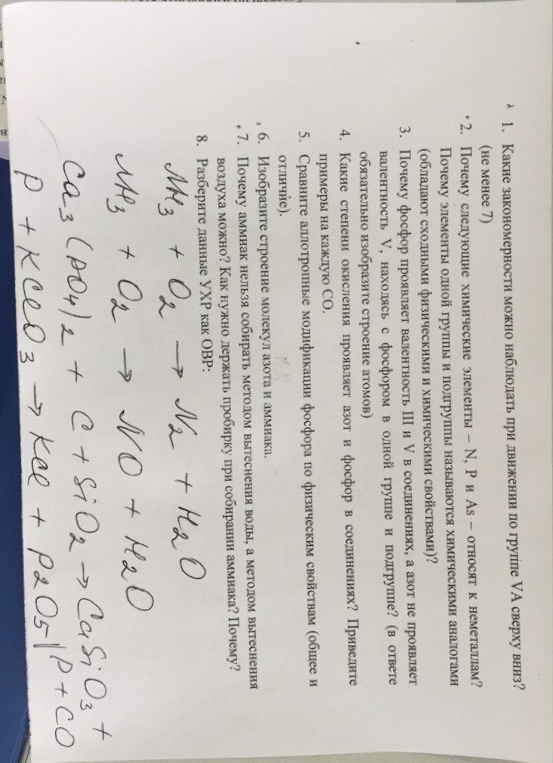 1. Какие закономерности можно наблюдать при движении по группе VA сверху вниз?
(не менее 7)
2. Почему следующие химические элементы – N, P и As – относят к неметаллам?
Почему элементы одной группы и подгруппы называются химическими аналогами
(обладают сходными физическими и химическими свойствами)?
3. Почему фосфор проявляет валентность III и V в соединениях, а азот не проявляет
валентность V, находясь с фосфором в одной группе и подгруппе? (в ответе
обязательно изобразите строение атомов)
4. Какие степени окисления проявляет азот и фосфор в соединениях? Приведите
примеры на каждую СО.
5. Сравните аллотропные модификации фосфора по физическим свойствам (общее и
отличие).
6. Изобразите строение молекул азота и аммиака.
7. Почему аммиак нельзя собирать методом вытеснения воды, а методом вытеснения
воздуха можно? Как нужно держать пробирку при собирании аммиака? Почему?
8. Разберите данные УХР как ОВР:
NH3 + O2 → N2 + H2O
NH3 + O2 → NO + H2O
Ca3(PO4)2 + C + SiO2 → CaSiO3 +
P + CO
P + KClO3 → KCl + P2O5